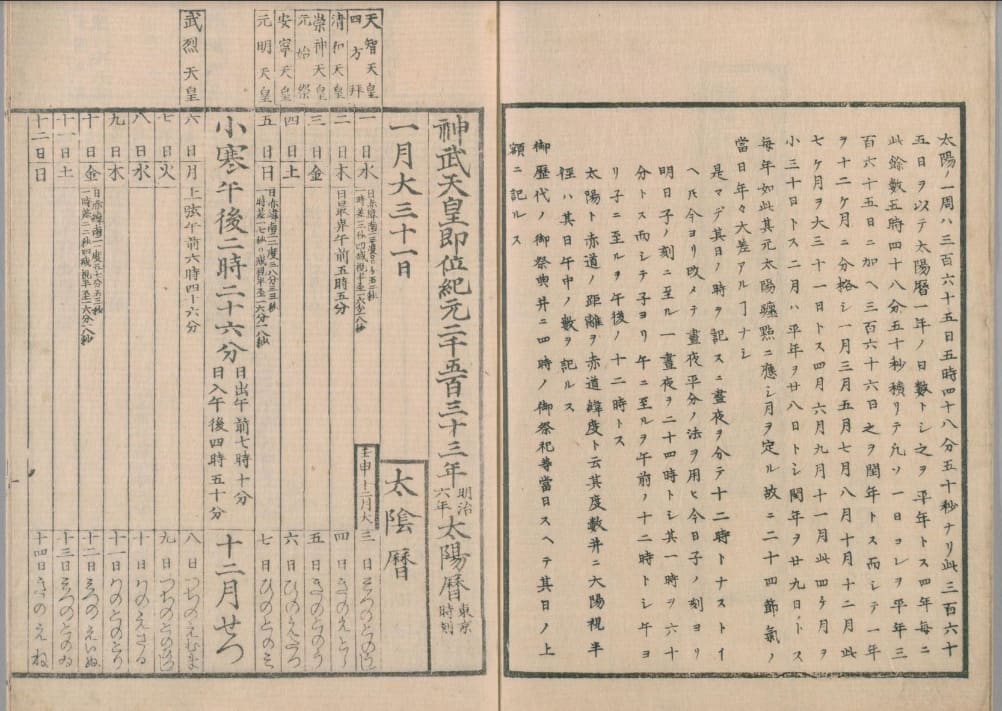 太陽ノ一周ハ三百六十五日五時四十八分五十秒ナリ此三百六十
五日ヲ以テ太陽暦一年ノ日數トシ之ヲ平年トス四年每ニ
此餘數五時四十八分五十秒積リテ凡ソ一日コレヲ平年三
百六十五日ニ加ヘ三百六十六日之ヲ閏年トス而シテ一年
ヲ十二ケ月ニ分格シ一月三月五月七月八月十月十二月此
七ケ月ヲ大三十一日トス四月六月九月十一月此四ケ月ヲ
小三十日トス二月ハ平年ヲ廿八日トシ閏年ヲ廿九日トス
每年如此其元太陽躔㸃ニ應シ月ヲ定ル故ニ二十四節氣ノ
當日年々大差アルヿナシ
是マデ其日ノ時ヲ記スニ晝夜ヲ分テ十二時トナストイ
ヘ𪜈今ヨリ改メテ晝夜平分ノ法ヲ用ヒ今日子ノ刻ヨリ
明日子ノ刻ニ至ル一晝夜ヲ二十四時トシ其一時ヲ六十
分トス而シテ子ヨリ午ニ至ルヲ午前ノ十二時トシ午ヨ
リ子ニ至ルヲ午後ノ十二時トス
太陽ト赤道ノ距離ヲ赤道緯度ト云其度數并ニ太陽視半
徑ハ其日午中ノ數ヲ記ルス
御歷代ノ御祭典并ニ四時ノ御祭祀等當日スヘテ其日ノ上
額ニ記ルス
神武天皇即位紀元二千五百三十三年 明治六年 太陽暦 東京時刻
一月大三十一日 太陰暦
壬申十二月大
天智天皇 四方拜 一日水 三日
清和天皇 二日木 日最卑午前五時五分 四日きのえとら
崇神天皇 元始祭 三日金 五日きのとのう
安寧天皇 四日土 六日ひのえたつ
元明天皇 五日日 七日ひのとのみ
小寒午後二時二十六分 日出午前七時十分 日入午後四時五十分 十二月せつ
武烈天皇 六日月 上弦午前六時四十六分 八日つちのえむま
七日火 九日つちのとのひつし
八日水 十日かのえさる
九日木 十一日かのとのとり
十日金 十二日みつのえいぬ
十一日土 十三日みつのとのゐ
十二日日 十四日きのえね